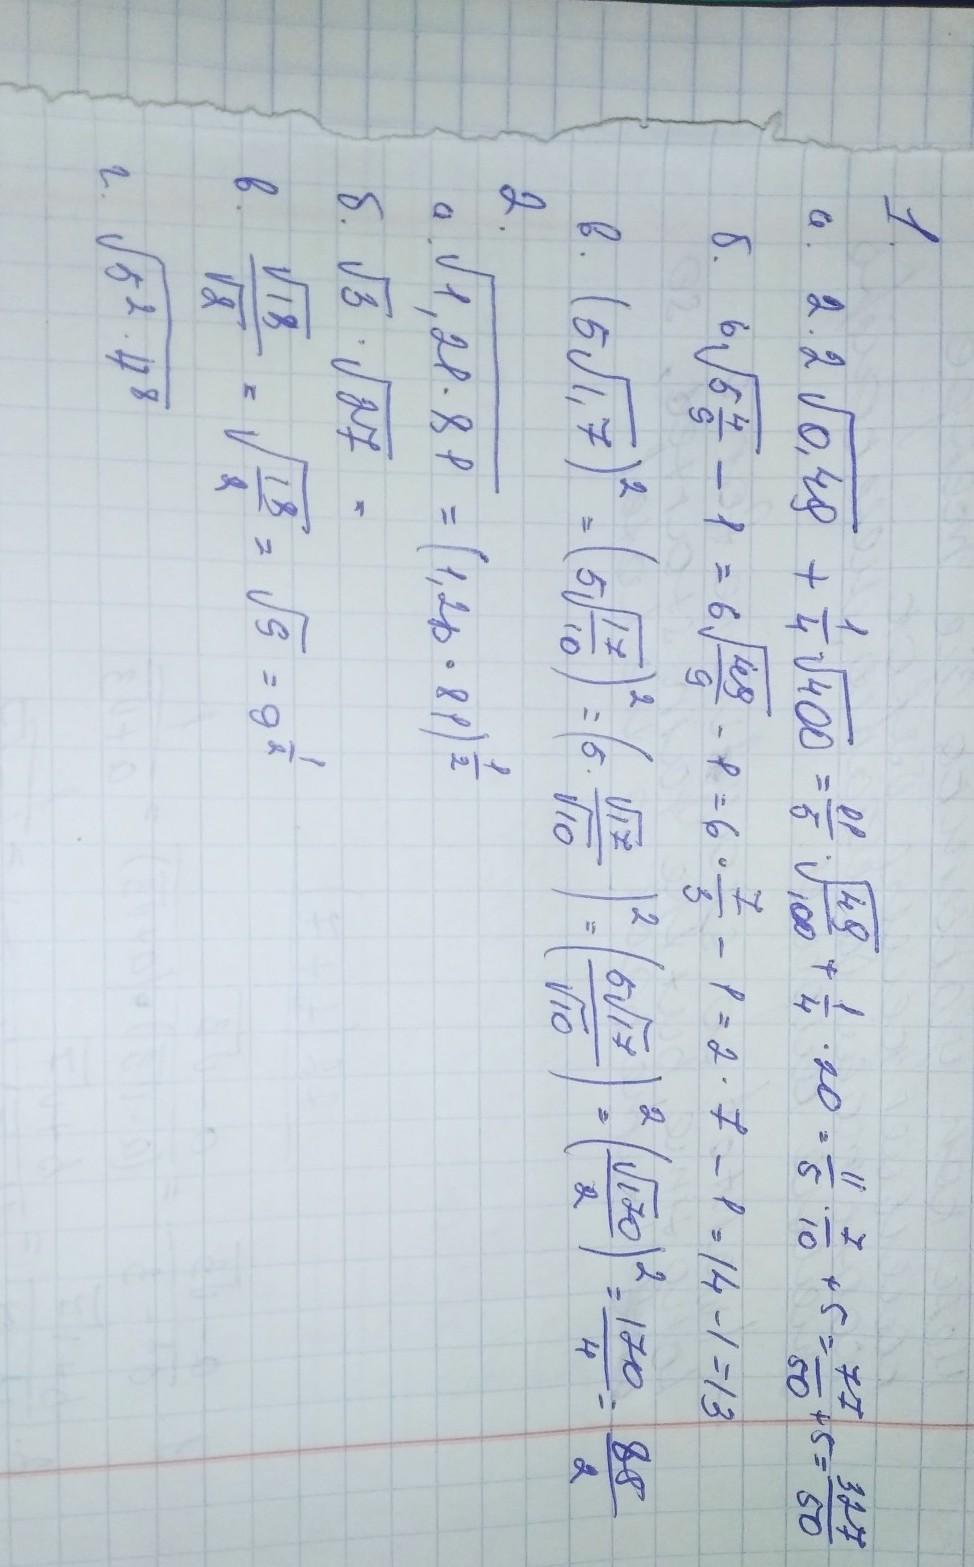 1.
а. 2.2√0,49 + 1/4 √400 = 11/5 · √49/100 + 1/4 · 20 = 11/5 · 7/10 + 5 = 77/50 + 5 = 327/50
б. 6√5 4/9 - 1 = 6√49/9 - 1 = 6 · 7/3 - 1 = 2 · 7 - 1 = 14 - 1 = 13
в. (5√1,7)² = (5√17/10)² = (5 · √17/√10)² = (5√17/√10)² = (√170/2)² = 170/4 = 85/2
2.
а. √1,21 · 81 = (1,21 · 81)^1/2
б. √3 · √27 =
в. √18/√2 = √18/2 = √9 = 9^1/2
г. √5² · 4⁸